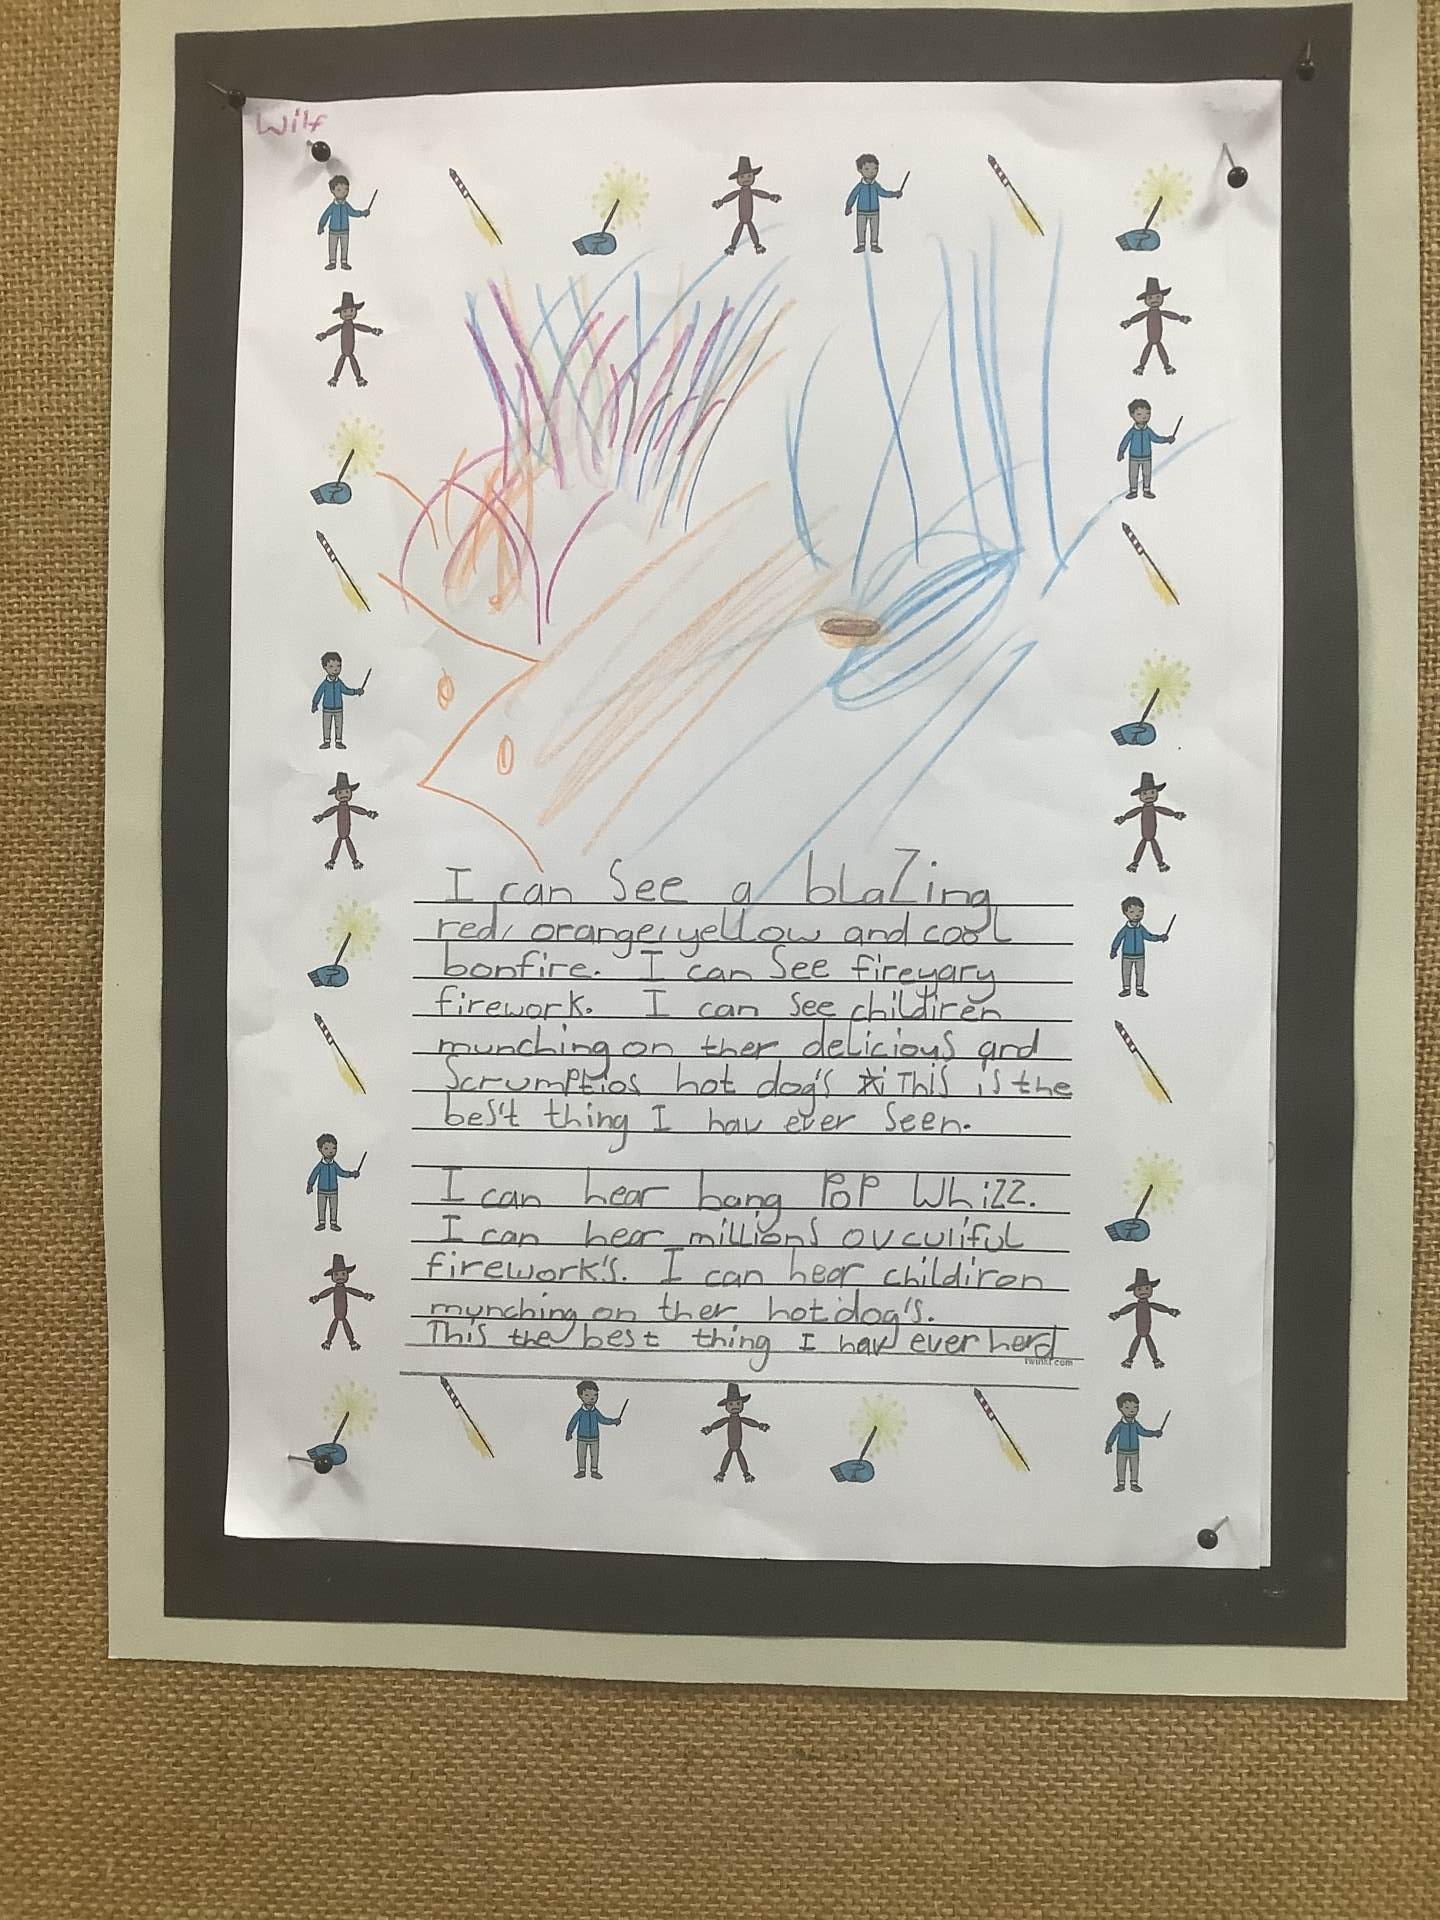 Wilf
I can See a blaZing
red, orange, yellow and cool
bonfire. I can See fireyary
firework. I can see childiren
munching on ther delicious and
Scrumptios hot dog's This is the
bes't thing I hav ever Seen.
I can hear bang PoP Whizz.
I can hear millions ov culiful
firework's. I can hear childiren
munching on ther hot dog's.
This the best thing I hav ever herd
twinkl.com